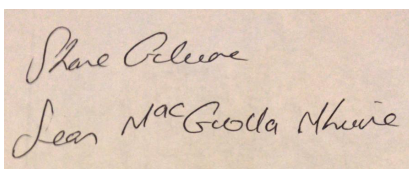 Shane Gilmore
Sean MacGiolla Mhuire